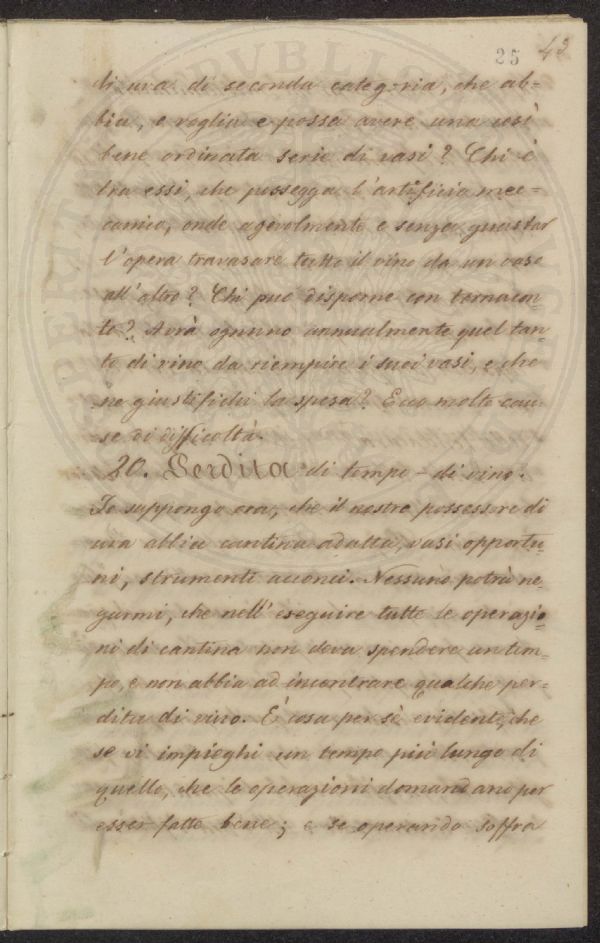 25 43
di uva di seconda categoria, che ab-
bia, e voglia e possa avere una così
bene ordinata serie di vasi? Chi è
tra essi, che possegga l'artificio mec-
canico, onde agevolmente e senza guastar
l'opera travasare tutto il vino da un vaso
all'altro? Chi può disporne con tornacon-
to? Avrà ognuno annualmente quel tan-
to di vino da riempire i suoi vasi, e che
ne giustifichi la spesa? Ecco molte cau-
se di difficoltà.
20. Perdita di tempo - di vino.
Io suppongo ora, che il nostro possessore di
uva abbia cantina adatta, vasi opportu-
ni, strumenti acconci. Nessuno potrà ne-
garmi, che nell'eseguire tutte le operazio-
ni di cantina non deva spendere un tem-
po, e non abbia ad incontrare qualche per-
dita di vino. È cosa per sè evidente, che
se vi impieghi un tempo più lungo di
quello, che le operazioni domandano per
esser fatte bene; e se operando soffra